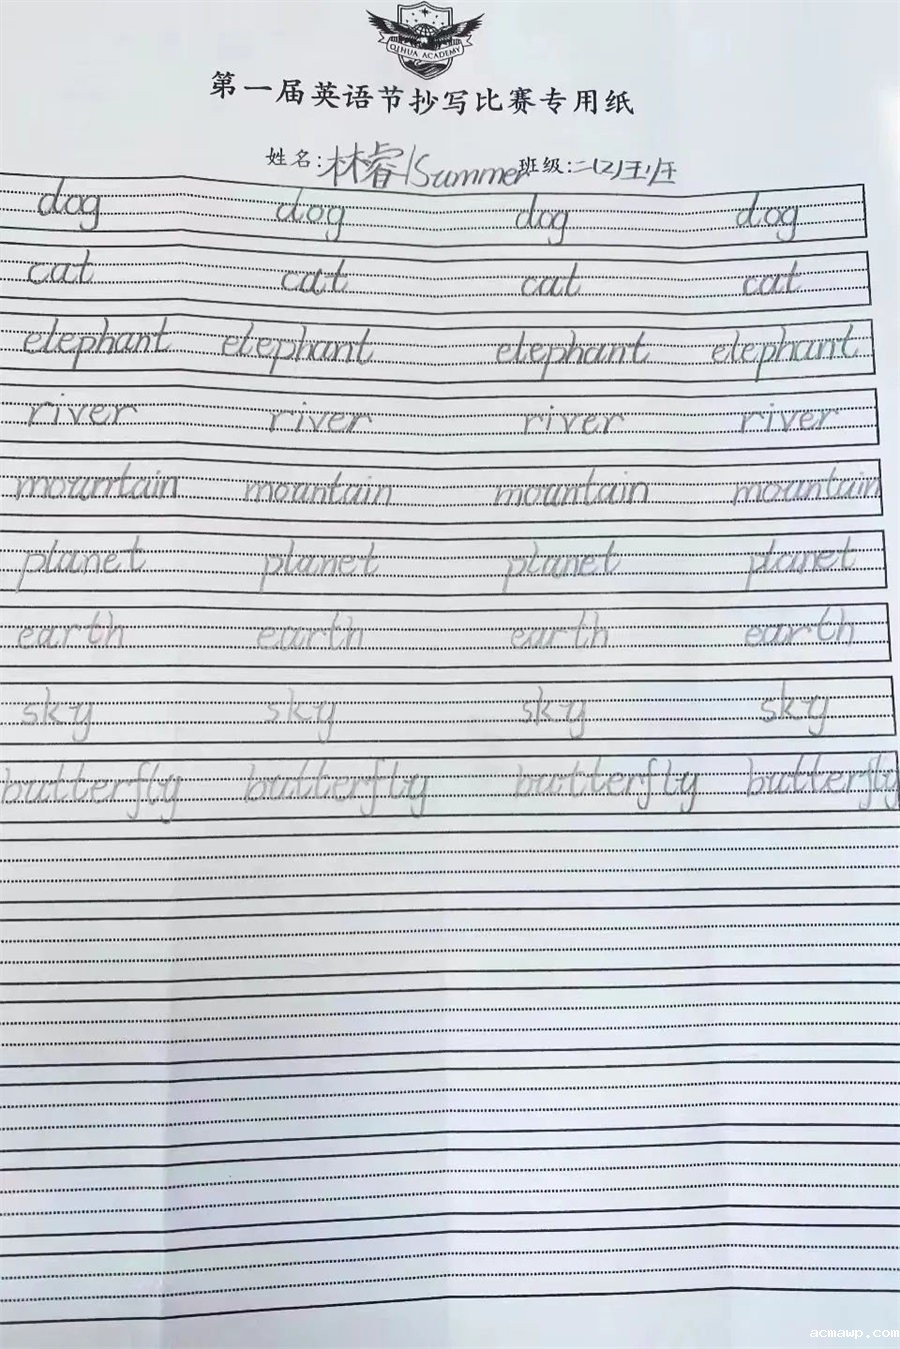 QIHUA ACADEMY
第一届英语节抄写比赛专用纸
姓名:林睿/Summer 班级:二(2)班
dog dog dog dog
cat cat cat cat
elephant elephant elephant elephant
river river river river
mountain mountain mountain mountain
planet planet planet planet
earth earth earth earth
sky sky sky sky
butterfly butterfly butterfly butterfly
acmawp.com